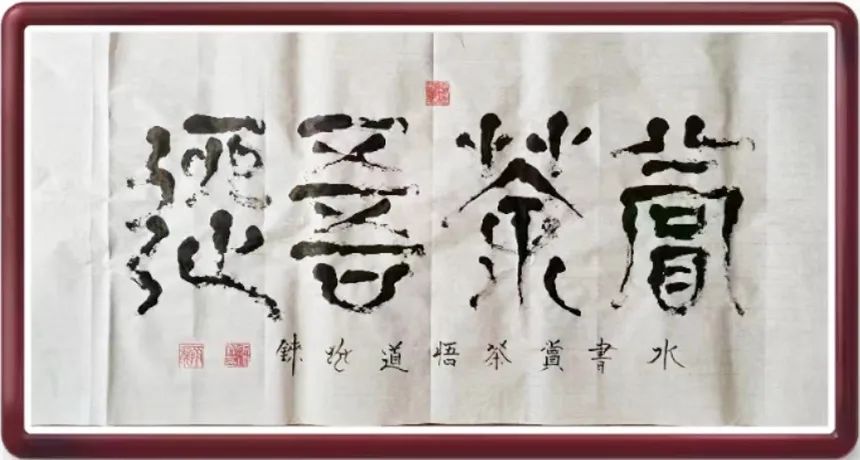 賞茶悟道
水書賞茶悟道